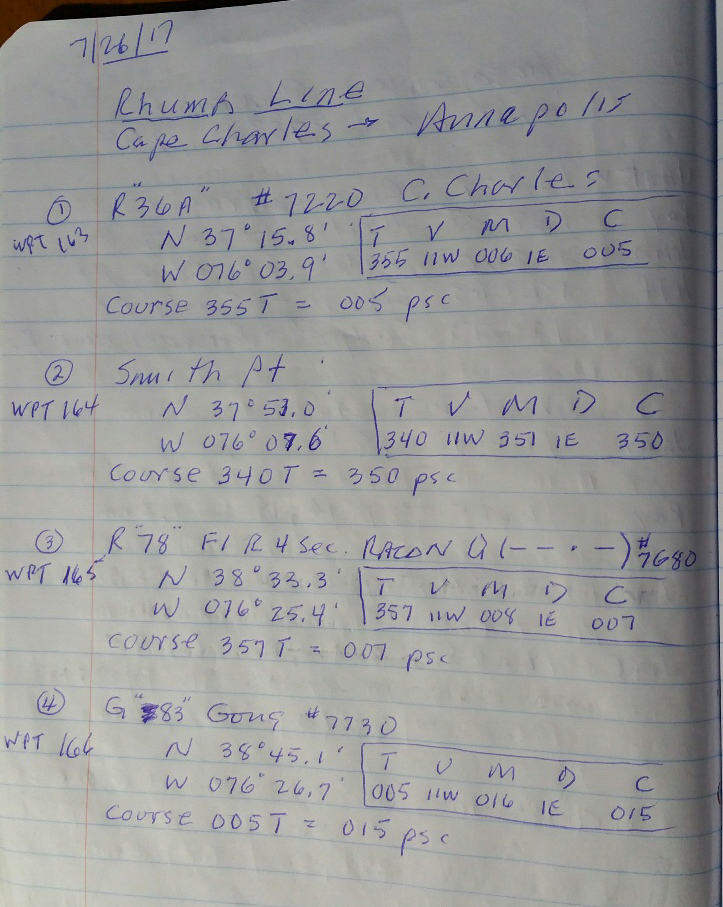 7/26/17
Rhumb Line
Cape Charles → Annapolis
① R "36A" # 7220 C. Charles
WPT 163 N 37° 15.8' T V M D C
W 076° 03.9' 355 11W 006 1E 005
Course 355T = 005 psc
② Smith Pt
WPT 164 N 37° 53.0' T V M D C
W 076° 07.6' 340 11W 351 1E 350
Course 340T = 350 psc
③ R "78" Fl R 4 Sec. RACON Q (--·-) # 7680
WPT 165 N 38° 33.3' T V M D C
W 076° 25.4' 357 11W 008 1E 007
Course 357T = 007 psc
④ G "83" Gong # 7730
WPT 166 N 38° 45.1' T V M D C
W 076° 26.7' 005 11W 016 1E 015
Course 005T = 015 psc